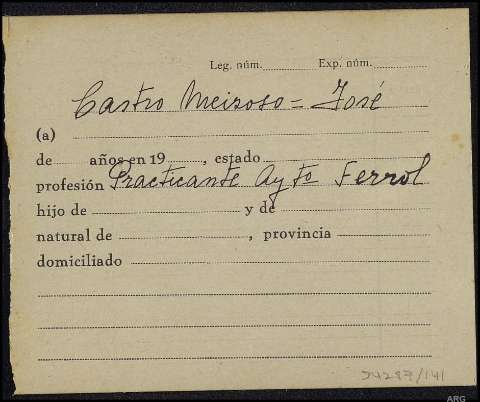 Leg. núm. Exp. núm.
Castro Meizoso = José
(a)
de años en 19 , estado
profesión Practicante Ayto Ferrol
hijo de y de
natural de , provincia
domiciliado
24287/141
ARG